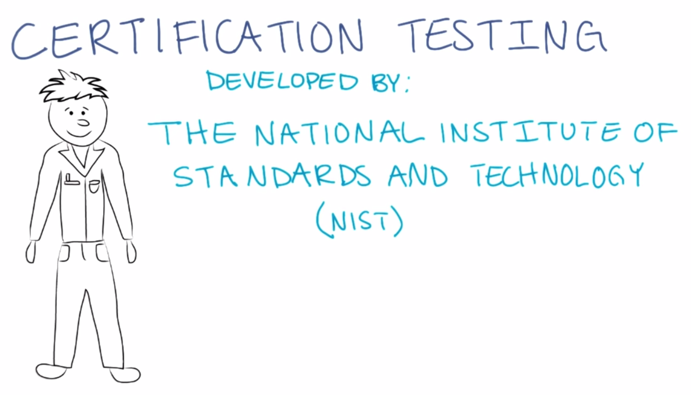 CERTIFICATION TESTING
DEVELOPED BY:
THE NATIONAL INSTITUTE OF
STANDARDS AND TECHNOLOGY
(NIST)